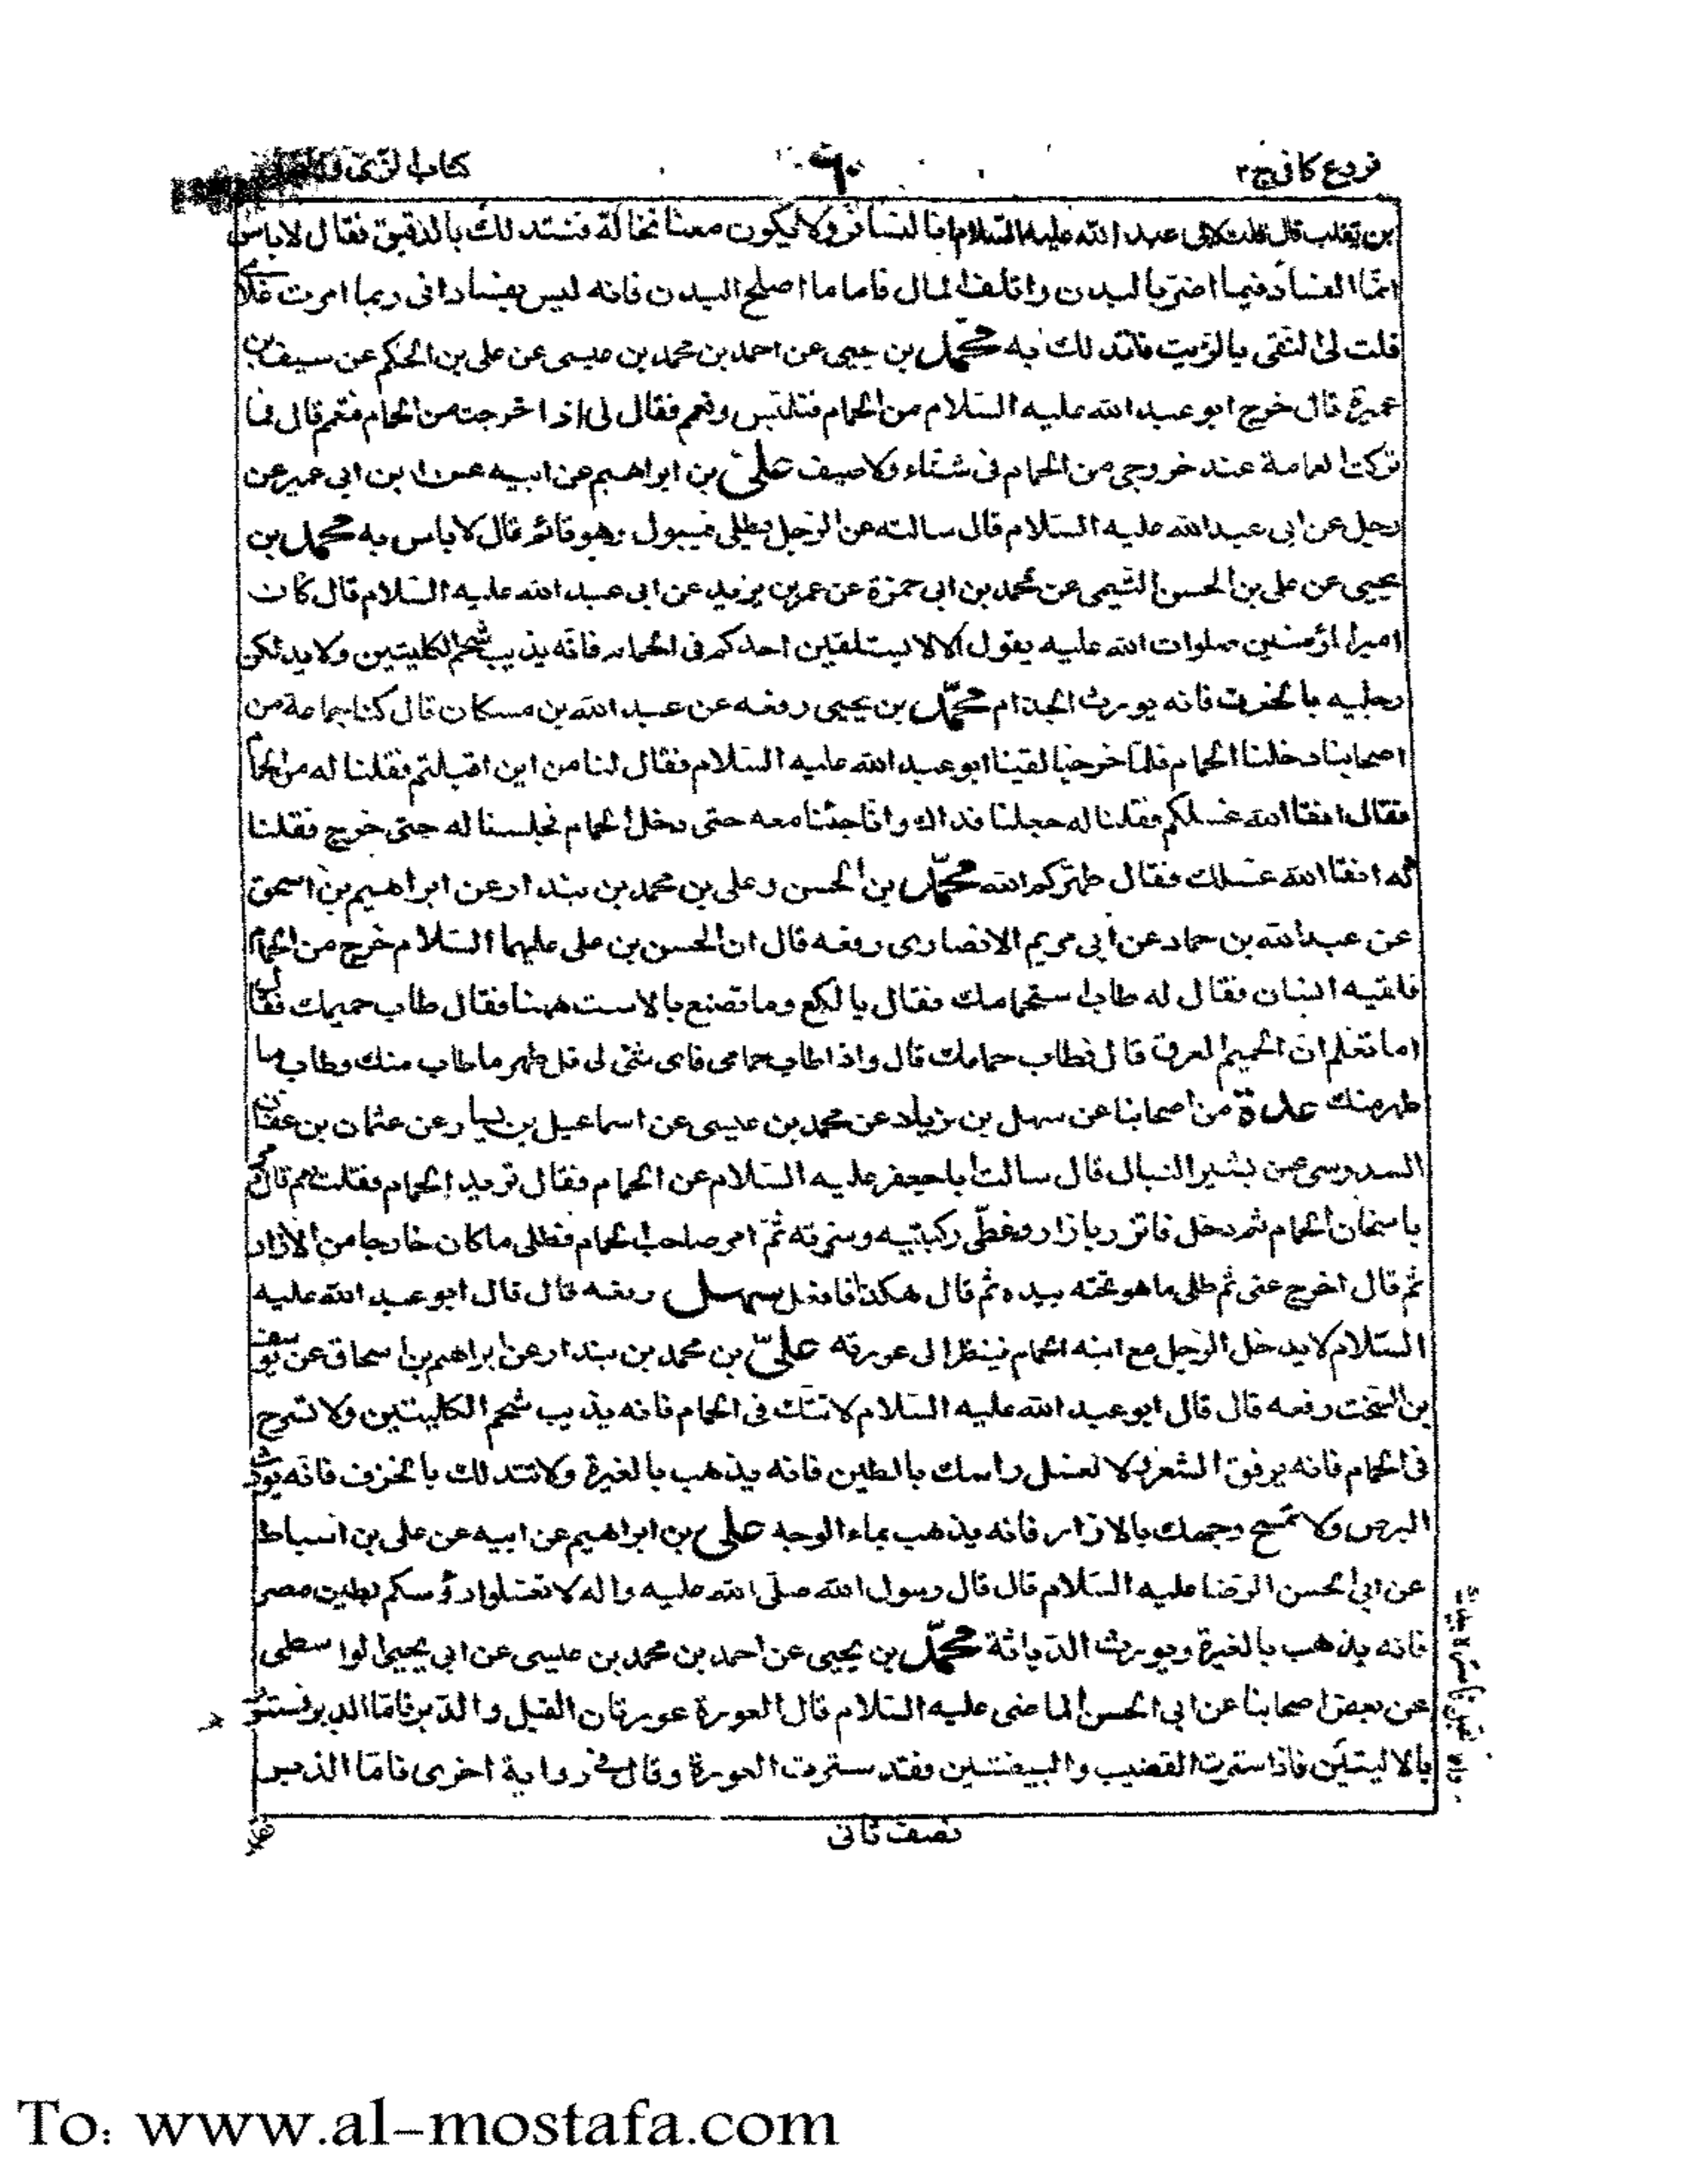 فروع كافى ج٢
كتاب الزى
بن تغلب قال قلت لابى عبد الله عليه السلام انا لنسافر ولا يكون معنا نخالة فنتدلك بالدقيق فقال لا باس
انما الفساد فيما اضر بالبدن واتلف المال فاما ما اصلح البدن فانه ليس بفساد انى ربما امرت غلامى
فلت لى النقى بالزيت فاتدلك به محمد بن يحيى عن احمد بن محمد بن عيسى عن على بن الحكم عن سيف بن
عميرة قال خرج ابو عبد الله عليه السلام من الحمام فتلبس وتعمم فقال لى اذا خرجت من الحمام فتعمم قال فما
تركت العمامة عند خروجى من الحمام فى شتاء ولا صيف على بن ابراهيم عن ابيه عن ابن ابى عمير عن
رجل عن ابى عبد الله عليه السلام قال سالته عن الرجل يطلى فيبول وهو قائم قال لا باس به محمد بن
يحيى عن على بن الحسن التيمى عن محمد بن ابى حمزة عن عمر بن يزيد عن ابى عبد الله عليه السلام قال كان
امير المؤمنين صلوات الله عليه يقول الا لا يستلقين احدكم فى الحمام فانه يذيب شحم الكليتين ولا يدلكن
رجليه بالخزف فانه يورث الجذام محمد بن يحيى رفعه عن عبد الله بن مسكان قال كنا جماعة من
اصحابنا دخلنا الحمام فلما خرجنا لقينا ابو عبد الله عليه السلام فقال لنا من اين اقبلتم فقلنا له من الحمام
فقال انقا الله غسلكم فقلنا له جعلنا فداك وانا جئنا معه حتى دخل الحمام فجلسنا له حتى خرج فقلنا
له انقا الله غسلك فقال طهركم الله محمد بن الحسن وعلى بن محمد بن بندار عن ابراهيم بن اسحق
عن عبد الله بن حماد عن ابى مريم الانصارى رفعه قال ان الحسن بن على عليهما السلام خرج من الحمام
فلقيه انسان فقال له طاب استحمامك فقال يا لكع وما تصنع بالاست ههنا فقال طاب حميمك فقال
اما تعلم ان الحميم العرق قال فطاب حمامك قال واذا طاب حمامى فاى شئ لى قل طهر ما طاب منك وطاب ما
طهر منك عدة من اصحابنا عن سهل بن زياد عن محمد بن عيسى عن اسماعيل بن يسار عن عثمان بن عفان
السدوسى عن بشير النبال قال سالت ابا جعفر عليه السلام عن الحمام فقال تريد الحمام فقلت نعم قال فامر
باسخان الحمام ثم دخل فاتزر بازار وغطى ركبتيه وسرته ثم امر صاحب الحمام فطلى ما كان خارجا من الازار
ثم قال اخرج عنى ثم طلى ما هو تحته بيده ثم قال هكذا فافعل سهل رفعه قال قال ابو عبد الله عليه
السلام لا يدخل الرجل مع ابنه الحمام فينظر الى عورته على بن محمد بن بندار عن ابراهيم بن اسحاق عن يوسف
بن السخت رفعه قال قال ابو عبد الله عليه السلام لا تتك فى الحمام فانه يذيب شحم الكليتين ولا تسرح
فى الحمام فانه يرقق الشعر ولا تغسل راسك بالطين فانه يذهب بالغيرة ولا تتدلك بالخزف فانه يورث
البرص ولا تمسح وجهك بالازار فانه يذهب بماء الوجه على بن ابراهيم عن ابيه عن على بن اسباط
عن ابى الحسن الرضا عليه السلام قال قال رسول الله صلى الله عليه واله لا تغسلوا رؤسكم بطين مصر
فانه يذهب بالغيرة ويورث الدياثة محمد بن يحيى عن احمد بن محمد بن عيسى عن ابى يحيى الواسطى
عن بعض اصحابنا عن ابى الحسن الماضى عليه السلام قال العورة عورتان القبل والدبر فاما الدبر مستور
بالاليتين فاذا سترت القضيب والبيضتين فقد سترت العورة وقال فى رواية اخرى فاما الدبر
نصف ثانى
To: www.al-mostafa.com